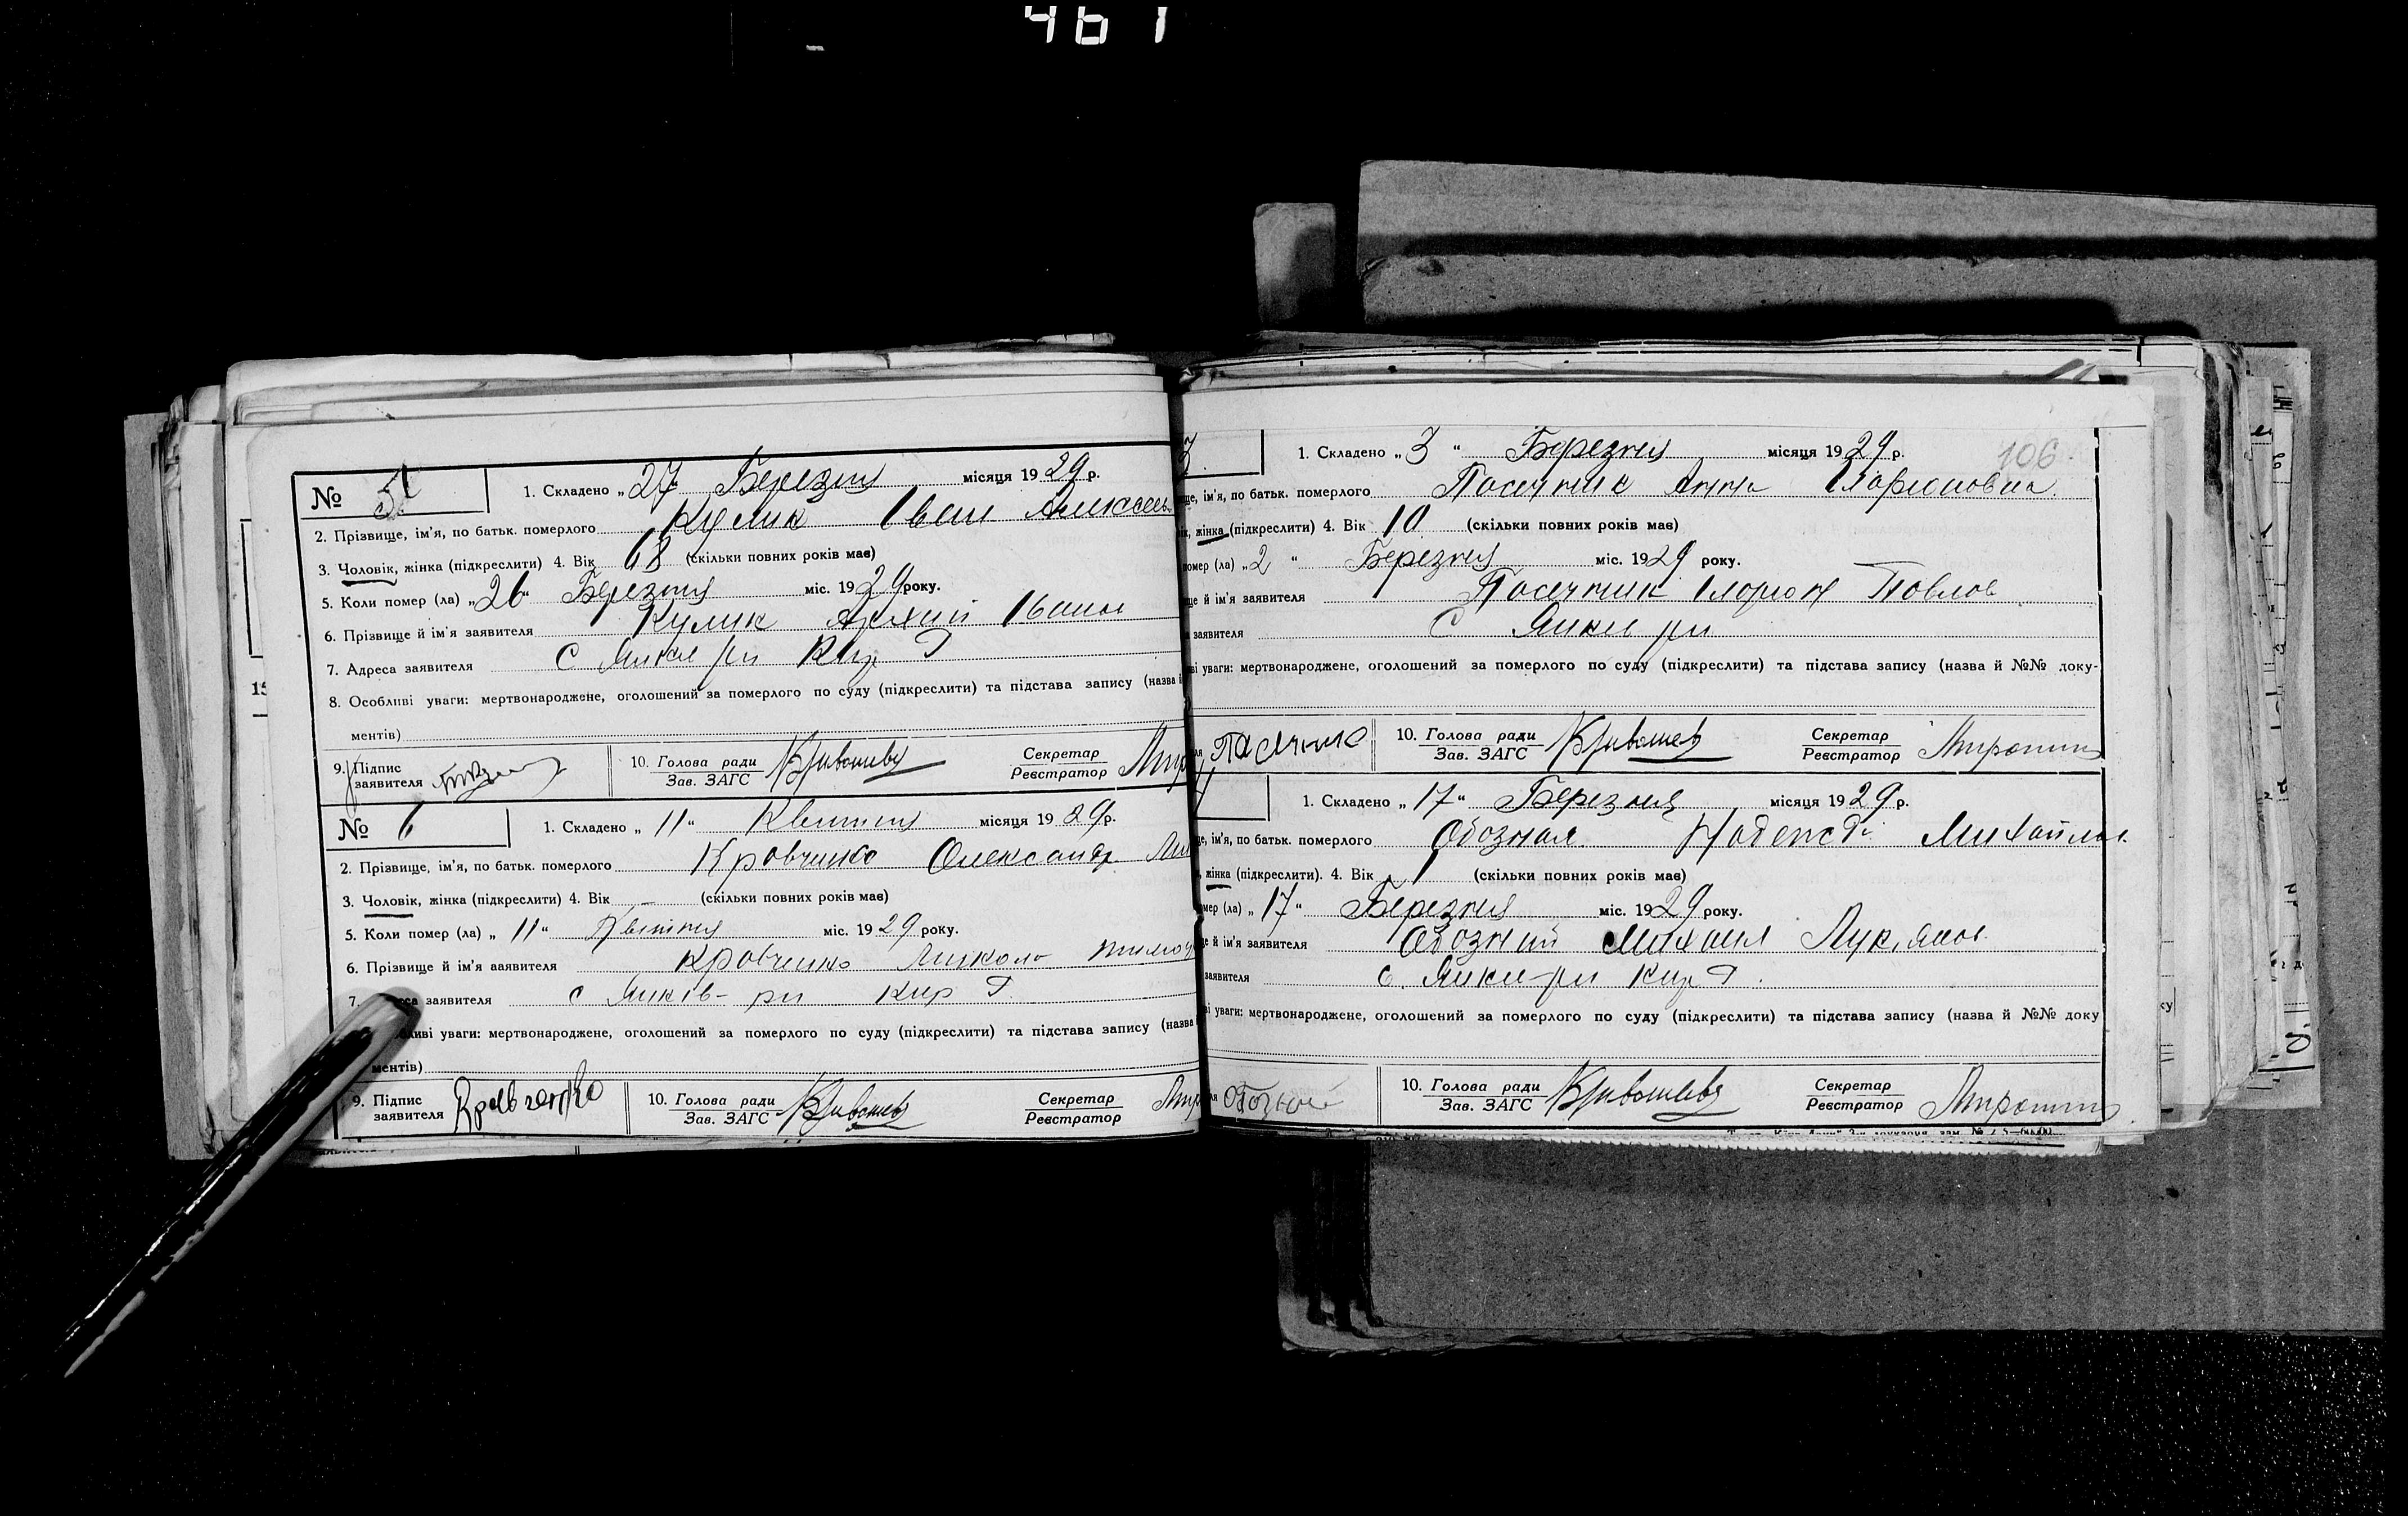 461
№ 5
1. Складено „27 Березня місяця 1929 р.
2. Прізвище, ім'я, по батьк. померлого Кулик Іван Алексеев
3. Чоловік, жінка (підкреслити) 4. Вік 68 (скільки повних років має)
5. Коли помер (ла) „26“ Березня міс. 1929 року.
6. Прізвище й ім'я заявителя Кулик Іванов
7. Адреса заявителя с Яики рп Кир Г
8. Особливі уваги: мертвонароджене, оголошений за померлого по суду (підкреслити) та підстава запису (назва й
ментів)
9. Підпис заявителя
10. Голова ради Зав. ЗАГС Кривошеев Секретар Реєстратор Мир
№ 6
1. Складено „11“ Квітня місяця 1929 р.
2. Прізвище, ім'я, по батьк. померлого Кравченко Олександр
3. Чоловік, жінка (підкреслити) 4. Вік – (скільки повних років має)
5. Коли помер (ла) „11“ Квітня міс. 1929 року.
6. Прізвище й ім'я заявителя Кравченко Микола
7. са заявителя с рп Кир Г.
ливі уваги: мертвонароджене, оголошений за померлого по суду (підкреслити) та підстава запису (назва
ментів)
9. Підпис заявителя Кравченко
10. Голова ради Зав. ЗАГС Кривошеев Секретар Реєстратор Мир
3
1. Складено „3“ Березня місяця 1929 р.
106
ще, ім'я, по батьк. померлого Пасечник Анна Іларионовна
жінка (підкреслити) 4. Вік 10 (скільки повних років має)
помер (ла) „2“ Березня міс. 1929 року.
ще й ім'я заявителя Пасечник Іларион Павлов
заявителя С Яики рп
ві уваги: мертвонароджене, оголошений за померлого по суду (підкреслити) та підстава запису (назва й №№ доку-
10. Голова ради Зав. ЗАГС Кривошеев Секретар Реєстратор Миронин
1. Складено „17“ Березня місяця 1929 р.
ще, ім'я, по батьк. померлого Обозная Надежда Михайлов
жінка (підкреслити). 4. Вік 1 (скільки повних років має)
мер (ла) „17“ Березня міс. 1929 року.
ще й ім'я заявителя Обозний Михаил Лук'янов
заявителя с. Яики-рп Кир Г.
ві уваги: мертвонароджене, оголошений за померлого по суду (підкреслити) та підстава запису (назва й №№ доку
Обозной
10. Голова ради Зав. ЗАГС Кривошеев Секретар Реєстратор Миронин